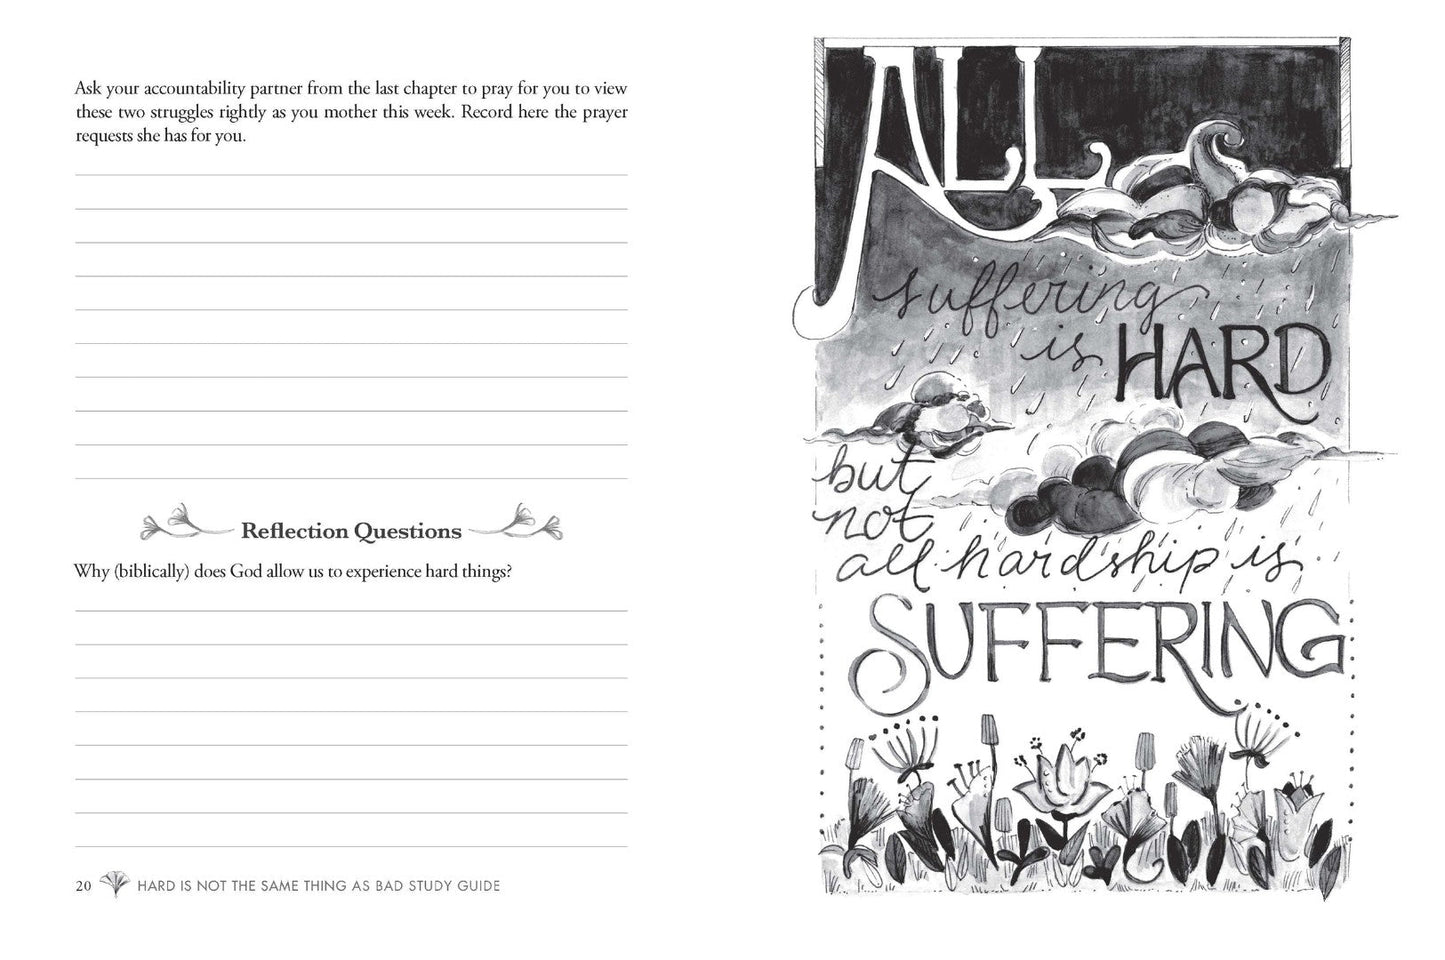 Ask your accountability partner from the last chapter to pray for you to view
these two struggles rightly as you mother this week. Record here the prayer
requests she has for you.
Reflection Questions
Why (biblically) does God allow us to experience hard things?
20 HARD IS NOT THE SAME THING AS BAD STUDY GUIDE
ALL
suffering
is HARD
but
not
all hardship is
SUFFERING